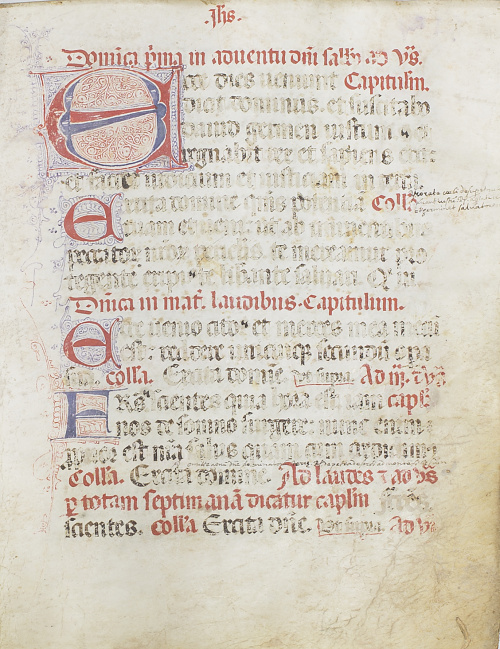 Jhs
Domica pma in aduentu dni sabbo ad vs.
Ecce dies ueniunt Capitulum.
dicit dominus. et suscitabo
dauid germen iustum
regnabit rex et sapiens erit
et faciet iudicium et iusticiam in terra
Excita domine quis potentiam Colla
tuam et ueni: ut ab iminentibus
peccator nror periculis. te mereamur pro
tegente eripi te liberante saluari. Qui
Dnica in mat. laudibus. Capitulum.
Ecce uenio cito et merces mea mecum
est. reddere unicuiq secundum opa
sua. colla. Excita domine. Vt supra. Ad iij. t vs
Frs scientes quia hora est iam caplm
nos de somno surgere. nunc enim
propior est nra salus quam cum credidimus
Colla. Excita domine. Ad laudes t ad vs
p totam septimanam dicatur caplm
scientes. colla Excita dne. Vt supra. Ad v